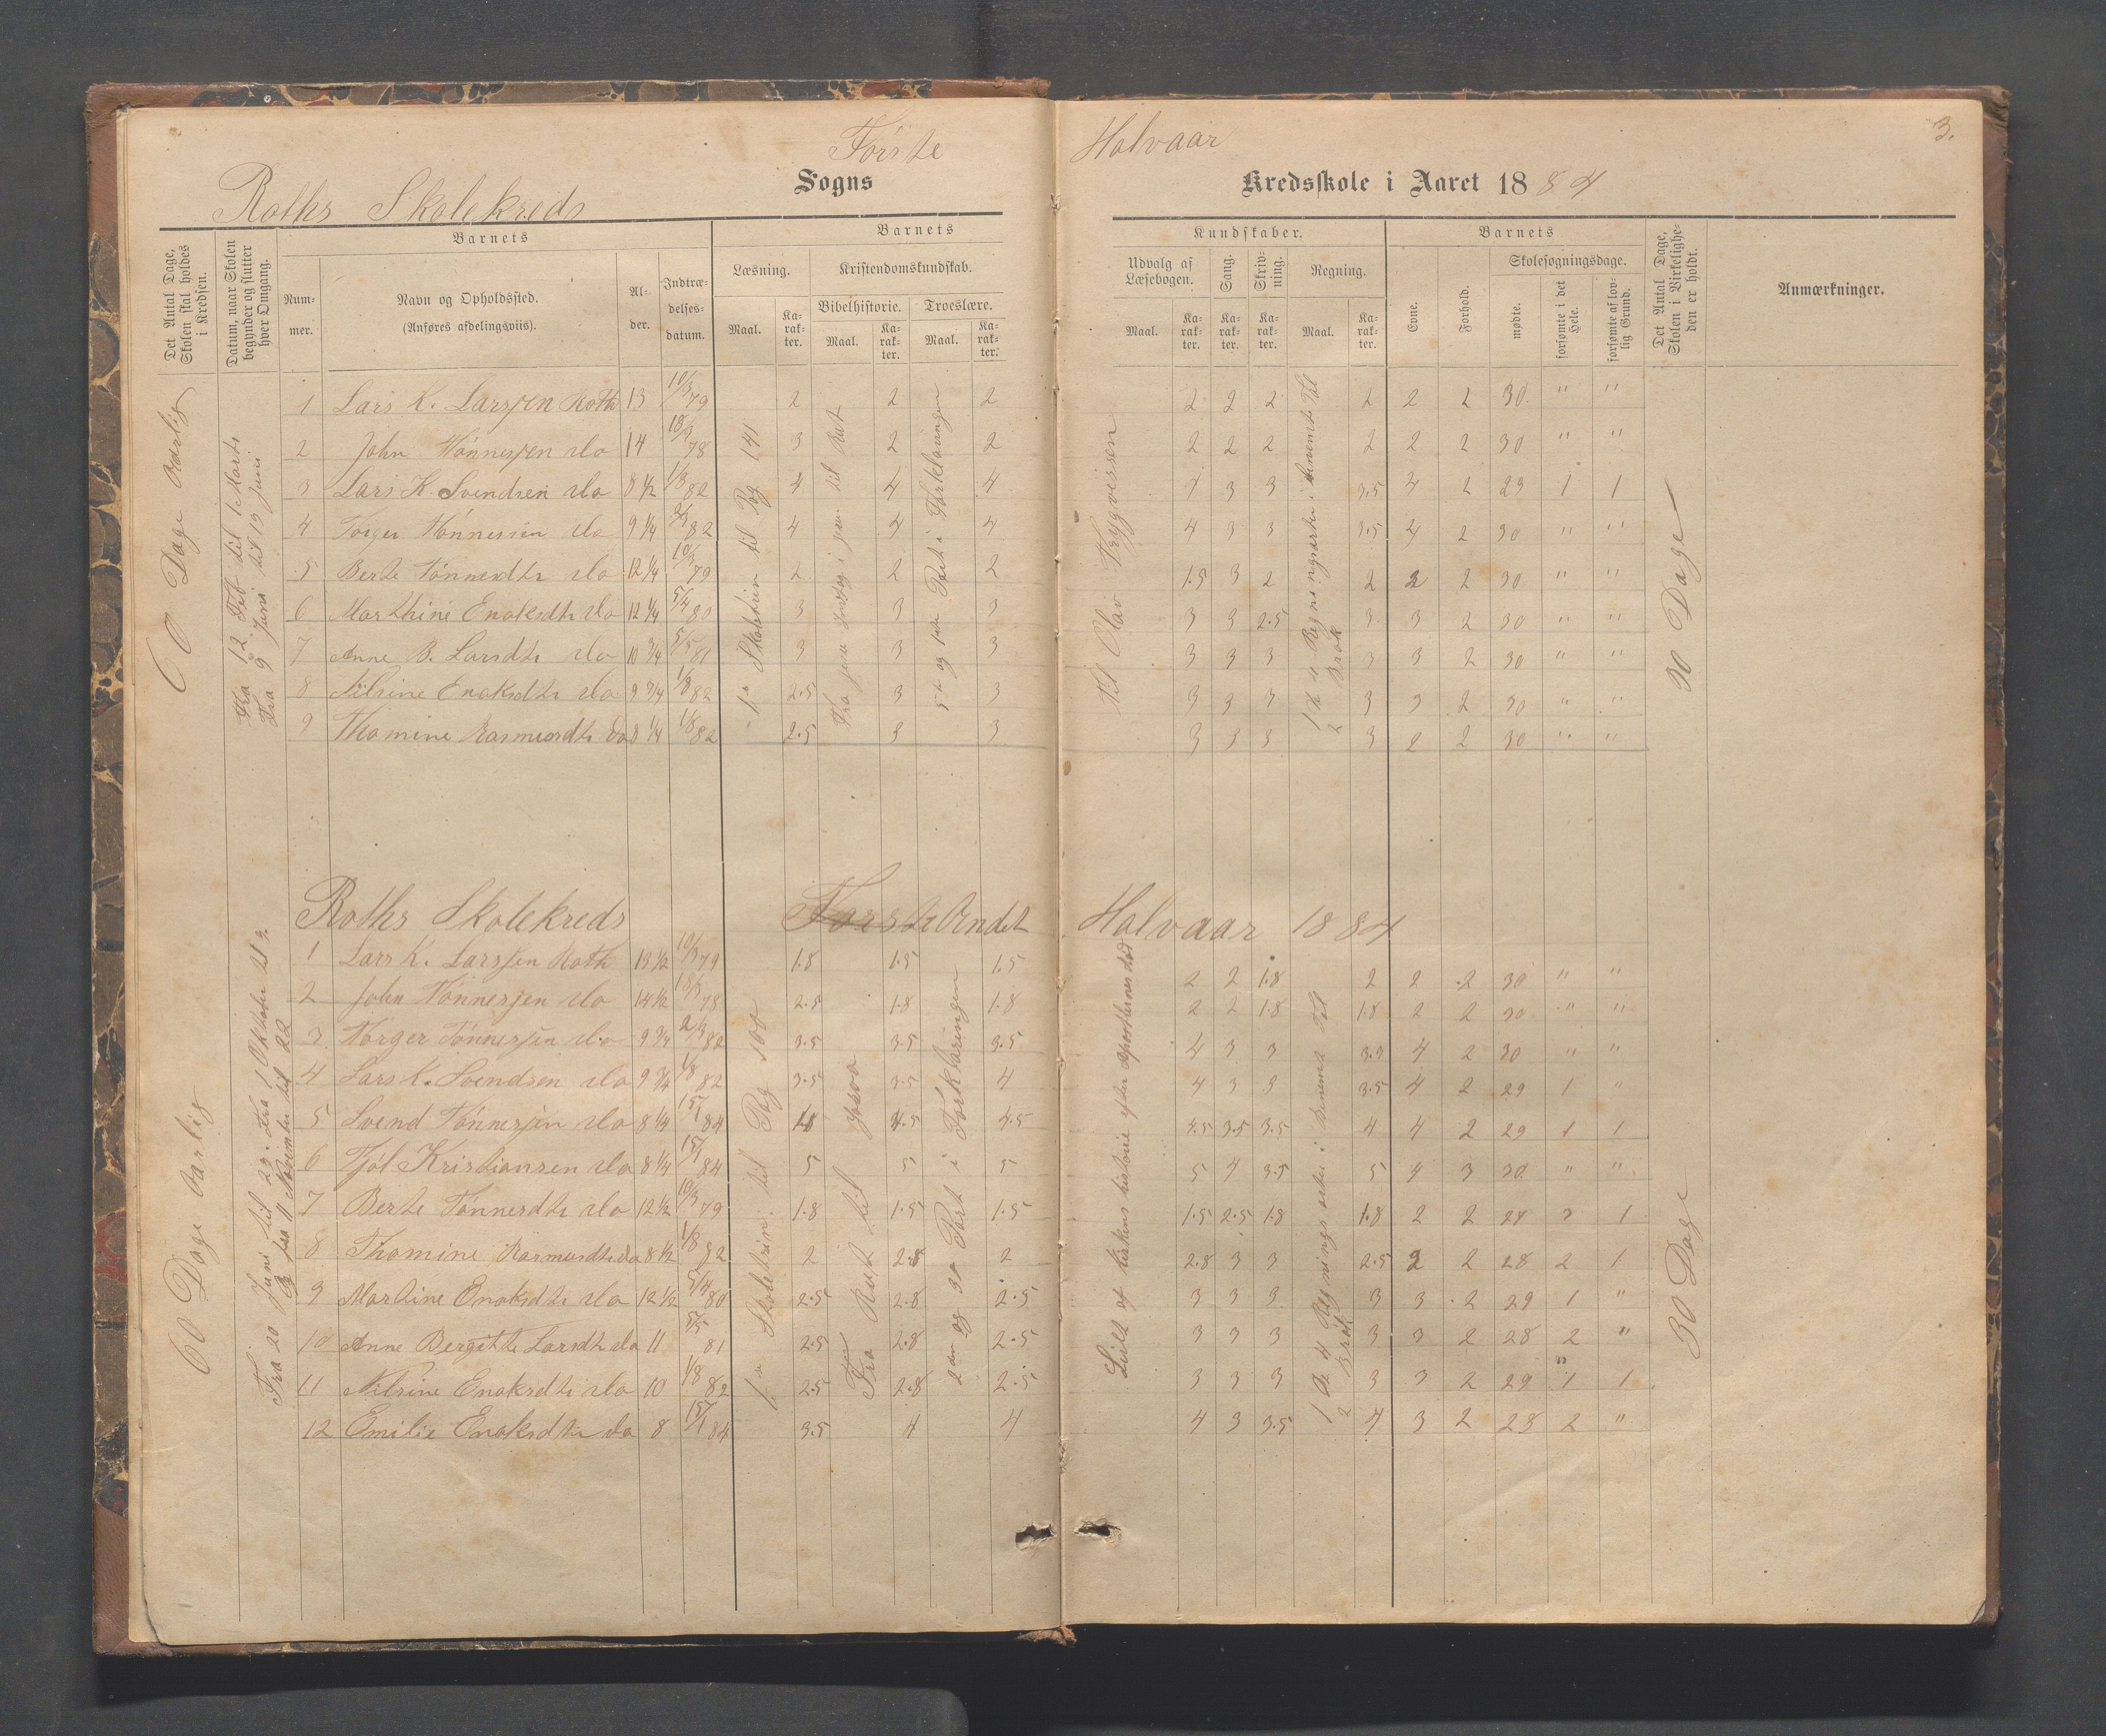 Første Halvaar 3.
Roths Skolekreds Sogns Kredsskole i Aaret 1884
Det Antal Dage, Skolen skal holdes i Kredsen.
Datum, naar Skolen begynder og slutter hver Omgang.
Barnets
Num-
mer.
Navn og Opholdssted.
(Anføres afdelingsviis).
Al-
der.
Indtræ-
delses-
datum.
Barnets
Læsning.
Kristendomskundskab.
Bibelhistorie.
Troeslære.
Maal.
Ka-
rak-
ter.
Maal.
Ka-
rak-
ter.
Maal.
Ka-
rak-
ter.
Kundskaber.
Udvalg af
Læsebogen.
Sang.
Skriv-
ning.
Regning.
Maal.
Ka-
rak-
ter.
Ka-
rak-
ter.
Ka-
rak-
ter.
Maal.
Ka-
rak-
ter.
Barnets
Evne.
Forhold.
Skolesøgningsdage.
mødte.
forsømte i det Hele.
forsømte af lov-
lig Grund.
Det Antal Dage, Skolen i Virkelighe-
den er holdt.
Anmærkninger.
60 Dage Aarlig
Fra 12 Feb til 1 Marts
Fra 9 Juni til 19 Juni
1 Lars K. Larssen Roth 13 10/3 79 2 2 2 2 2 2 2 2 2 30 " "
2 John Tönnessen do 14 18/3 78 3 2 2 2 2 2 2 2 2 30 " "
3 Lars K. Svendsen do 8 1/2 1/8 82 4 4 4 4 3 3 3.5 4 2 29 1 1
4 Torger Tönnessen do 9 1/4 2/3 82 4 4 4 4 3 3 3.5 4 2 30 " "
5 Berte Tönnesdtr do 12 1/4 10/3 79 2 2 2 1.5 3 2 2 2 2 30 " "
6 Marthine Enoksdtr do 12 1/4 5/4 80 3 3 3 3 3 2.5 3 3 2 30 " "
7 Anne B. Larsdtr do 10 3/4 5/5 81 3 3 3 3 3 3 3 3 2 30 " "
8 Nilsine Enoksdtr do 9 3/4 1/8 82 2.5 3 3 3 3 3 3 3 2 30 " "
9 Thomine Rasmusdtr do 8 1/4 1/8 82 2.5 3 3 3 3 3 3 2 2 30 " "
Skoletrin til Pag 141
til Rut
Part i Forklaringen
Til Olav Trygvessen
Regningsarter i benevnte Tal
Brøk
30 Dage
Roths Skolekreds Første Andet Halvaar 1884
60 Dage Aarlig
Fra 20 Juni til 29. Fra 1 Oktober til 3.
og fra 11 November til 22
1 Lars K. Larssen Roth 13 1/2 10/3 79 1.8 1.5 1.5 2 2 1.8 2 2 2 30 " "
2 John Tönnessen do 14 1/2 18/3 78 2.5 1.8 1.8 2 2 1.8 1.8 2 2 30 " "
3 Törger Tönnessen do 9 3/4 2/3 82 3.5 3.5 3.5 4 3 3 3.5 4 2 30 " "
4 Lars K. Svendsen do 9 3/4 1/8 82 3.5 3.5 4 4 3 3 3.5 4 2 29 1 "
5 Svend Tönnessen do 8 1/4 15/1 84 4.5 4.5 4.5 3.5 3.5 4 4 2 29 1 1
6 Tjöl Kristiansen do 8 1/4 15/1 84 5 5 5 5 4 3.5 5 4 3 30 " "
7 Berte Tönnesdtr do 12 1/2 10/3 79 1.8 1.5 1.5 1.5 2.5 1.8 1.8 2 2 27 3 1
8 Thomine Rasmusdtr do 8 1/2 1/8 82 2 2.8 2 2.8 3 3 2.5 2 2 28 2 1
9 Martine Enoksdtr do 12 1/2 5/4 80 2.5 2.8 2.5 3 3 3 3 3 2 29 1 "
10 Anne Bergitte Larsdtr do 11 5/5 81 2.5 2.8 2.5 3 3 3 3 3 2 28 2 "
11 Nilsine Enoksdtr do 10 1/8 82 2.5 2.8 2.5 3 3 3 3 3 2 29 1 1
12 Emilie Enoksdtr do 8 15/1 84 3.5 4 4 4 3 3.5 4 3 2 28 2 "
Skoletrin: til Pag 100
Fra Rut til Josva
2den og 3die Part i Forklaringen
Lidt af kirkens historie efter apostlernes död
Regningsarter i benevnte Tal
Brøk
30 Dage